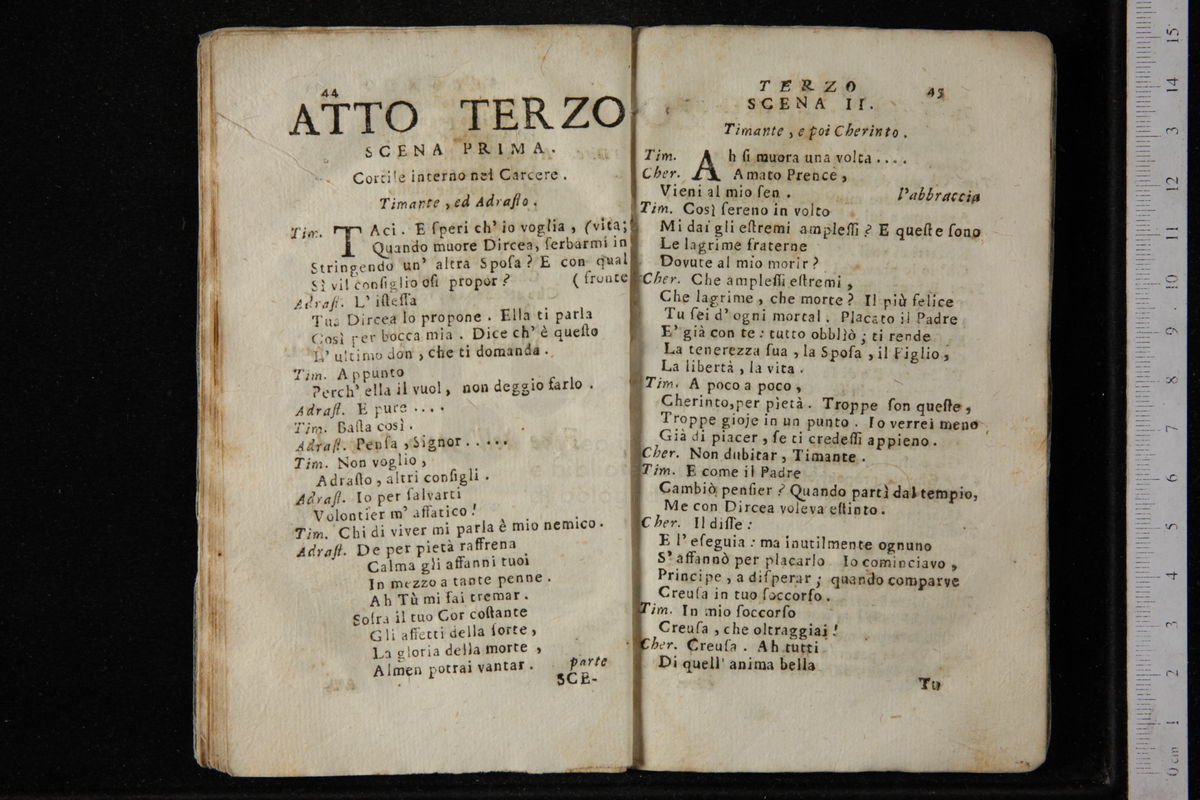 44
ATTO TERZO
SCENA PRIMA.
Cortile interno nel Carcere.
Timante, ed Adraſto.
Tim. TAci. E ſperi ch' io voglia, (vita;
Quando muore Dircea, ſerbarmi in
Stringendo un' altra Spoſa? E con qual
Sì vil conſiglio oſi propor? (fronte
Adraſt. L' iſteſſa
Tua Dircea lo propone. Ella ti parla
Così per bocca mia. Dice ch' è queſto
L' ultimo don, che ti domanda.
Tim. Appunto
Perch' ella il vuol, non deggio farlo.
Adraſt. E pure ....
Tim. Baſta così.
Adraſt. Penſa, Signor.....
Tim. Non voglio,
Adraſto, altri conſigli.
Adraſt. Io per ſalvarti
Volontier m' affatico!
Tim. Chi di viver mi parla è mio nemico.
Adraſt. De per pietà raffrena
Calma gli affanni tuoi
In mezzo a tante penne.
Ah Tù mi fai tremar.
Sofra il tuo Cor coſtante
Gli affetti della ſorte,
La gloria della morte,
Almen potrai vantar. parte
SCE-
TERZO 45
SCENA II.
Timante, e poi Cherinto.
Tim. Ah ſi muora una volta....
Cher. Amato Prence,
Vieni al mio ſen. l'abbraccia
Tim. Così ſereno in volto
Mi dai gli eſtremi ampleſſi? E queſte ſono
Le lagrime fraterne
Dovute al mio morir?
Cher. Che ampleſſi eſtremi,
Che lagrime, che morte? Il più felice
Tu ſei d' ogni mortal. Placato il Padre
E' già con te: tutto obbliò; ti rende
La tenerezza ſua, la Spoſa, il Figlio,
La libertà, la vita.
Tim. A poco a poco,
Cherinto, per pietà. Troppe ſon queſte,
Troppe gioje in un punto. Io verrei meno
Già di piacer, ſe ti credeſſi appieno.
Cher. Non dubitar, Timante.
Tim. E come il Padre
Cambiò penſier? Quando partì dal tempio,
Me con Dircea voleva eſtinto.
Cher. Il diſſe:
E l' eſeguia: ma inutilmente ognuno
S' affannò per placarlo Io cominciavo,
Principe, a diſperar; quando comparve
Creuſa in tuo ſoccorſo.
Tim. In mio ſoccorſo
Creuſa, che oltraggiai!
Cher. Creuſa. Ah tutti
Di quell' anima bella
Tu
15
14
13
12
11
10
9
8
7
6
5
4
3
2
1
0 cm